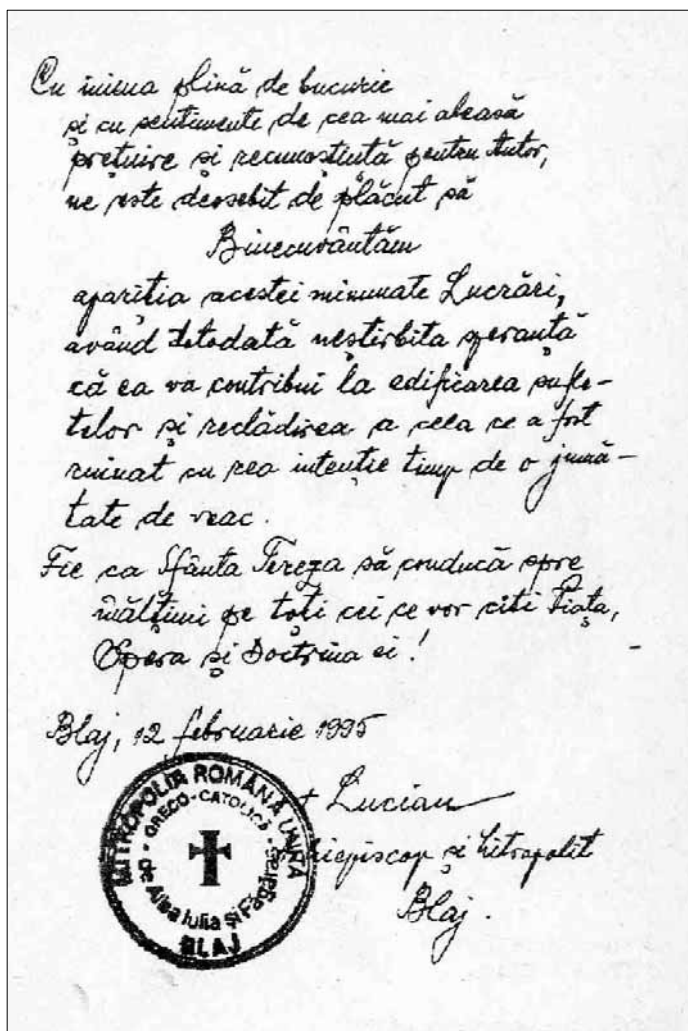 Cu inima plină de bucurie
și cu sentimente de cea mai aleasă
prețuire și recunoștință pentru Autor,
ne este deosebit de plăcut să
Binecuvântăm
apariția acestei minunate Lucrări,
având totodată neștirbita speranță
că ea va contribui la edificarea sufle-
telor și reclădirea a ceea ce a fost
ruinat cu rea intenție timp de o jumă-
tate de veac.
Fie ca Sfânta Tereza să conducă spre
înălțimi pe toți cei ce vor citi Viața,
Opera și Doctrina ei!
Blaj, 12 februarie 1995
+ Lucian
Arhiepiscop și Mitropolit
Blaj.
MITROPOLIA ROMÂNĂ UNITĂ
GRECO-CATOLICĂ
de Alba Iulia și Făgăraș
BLAJ